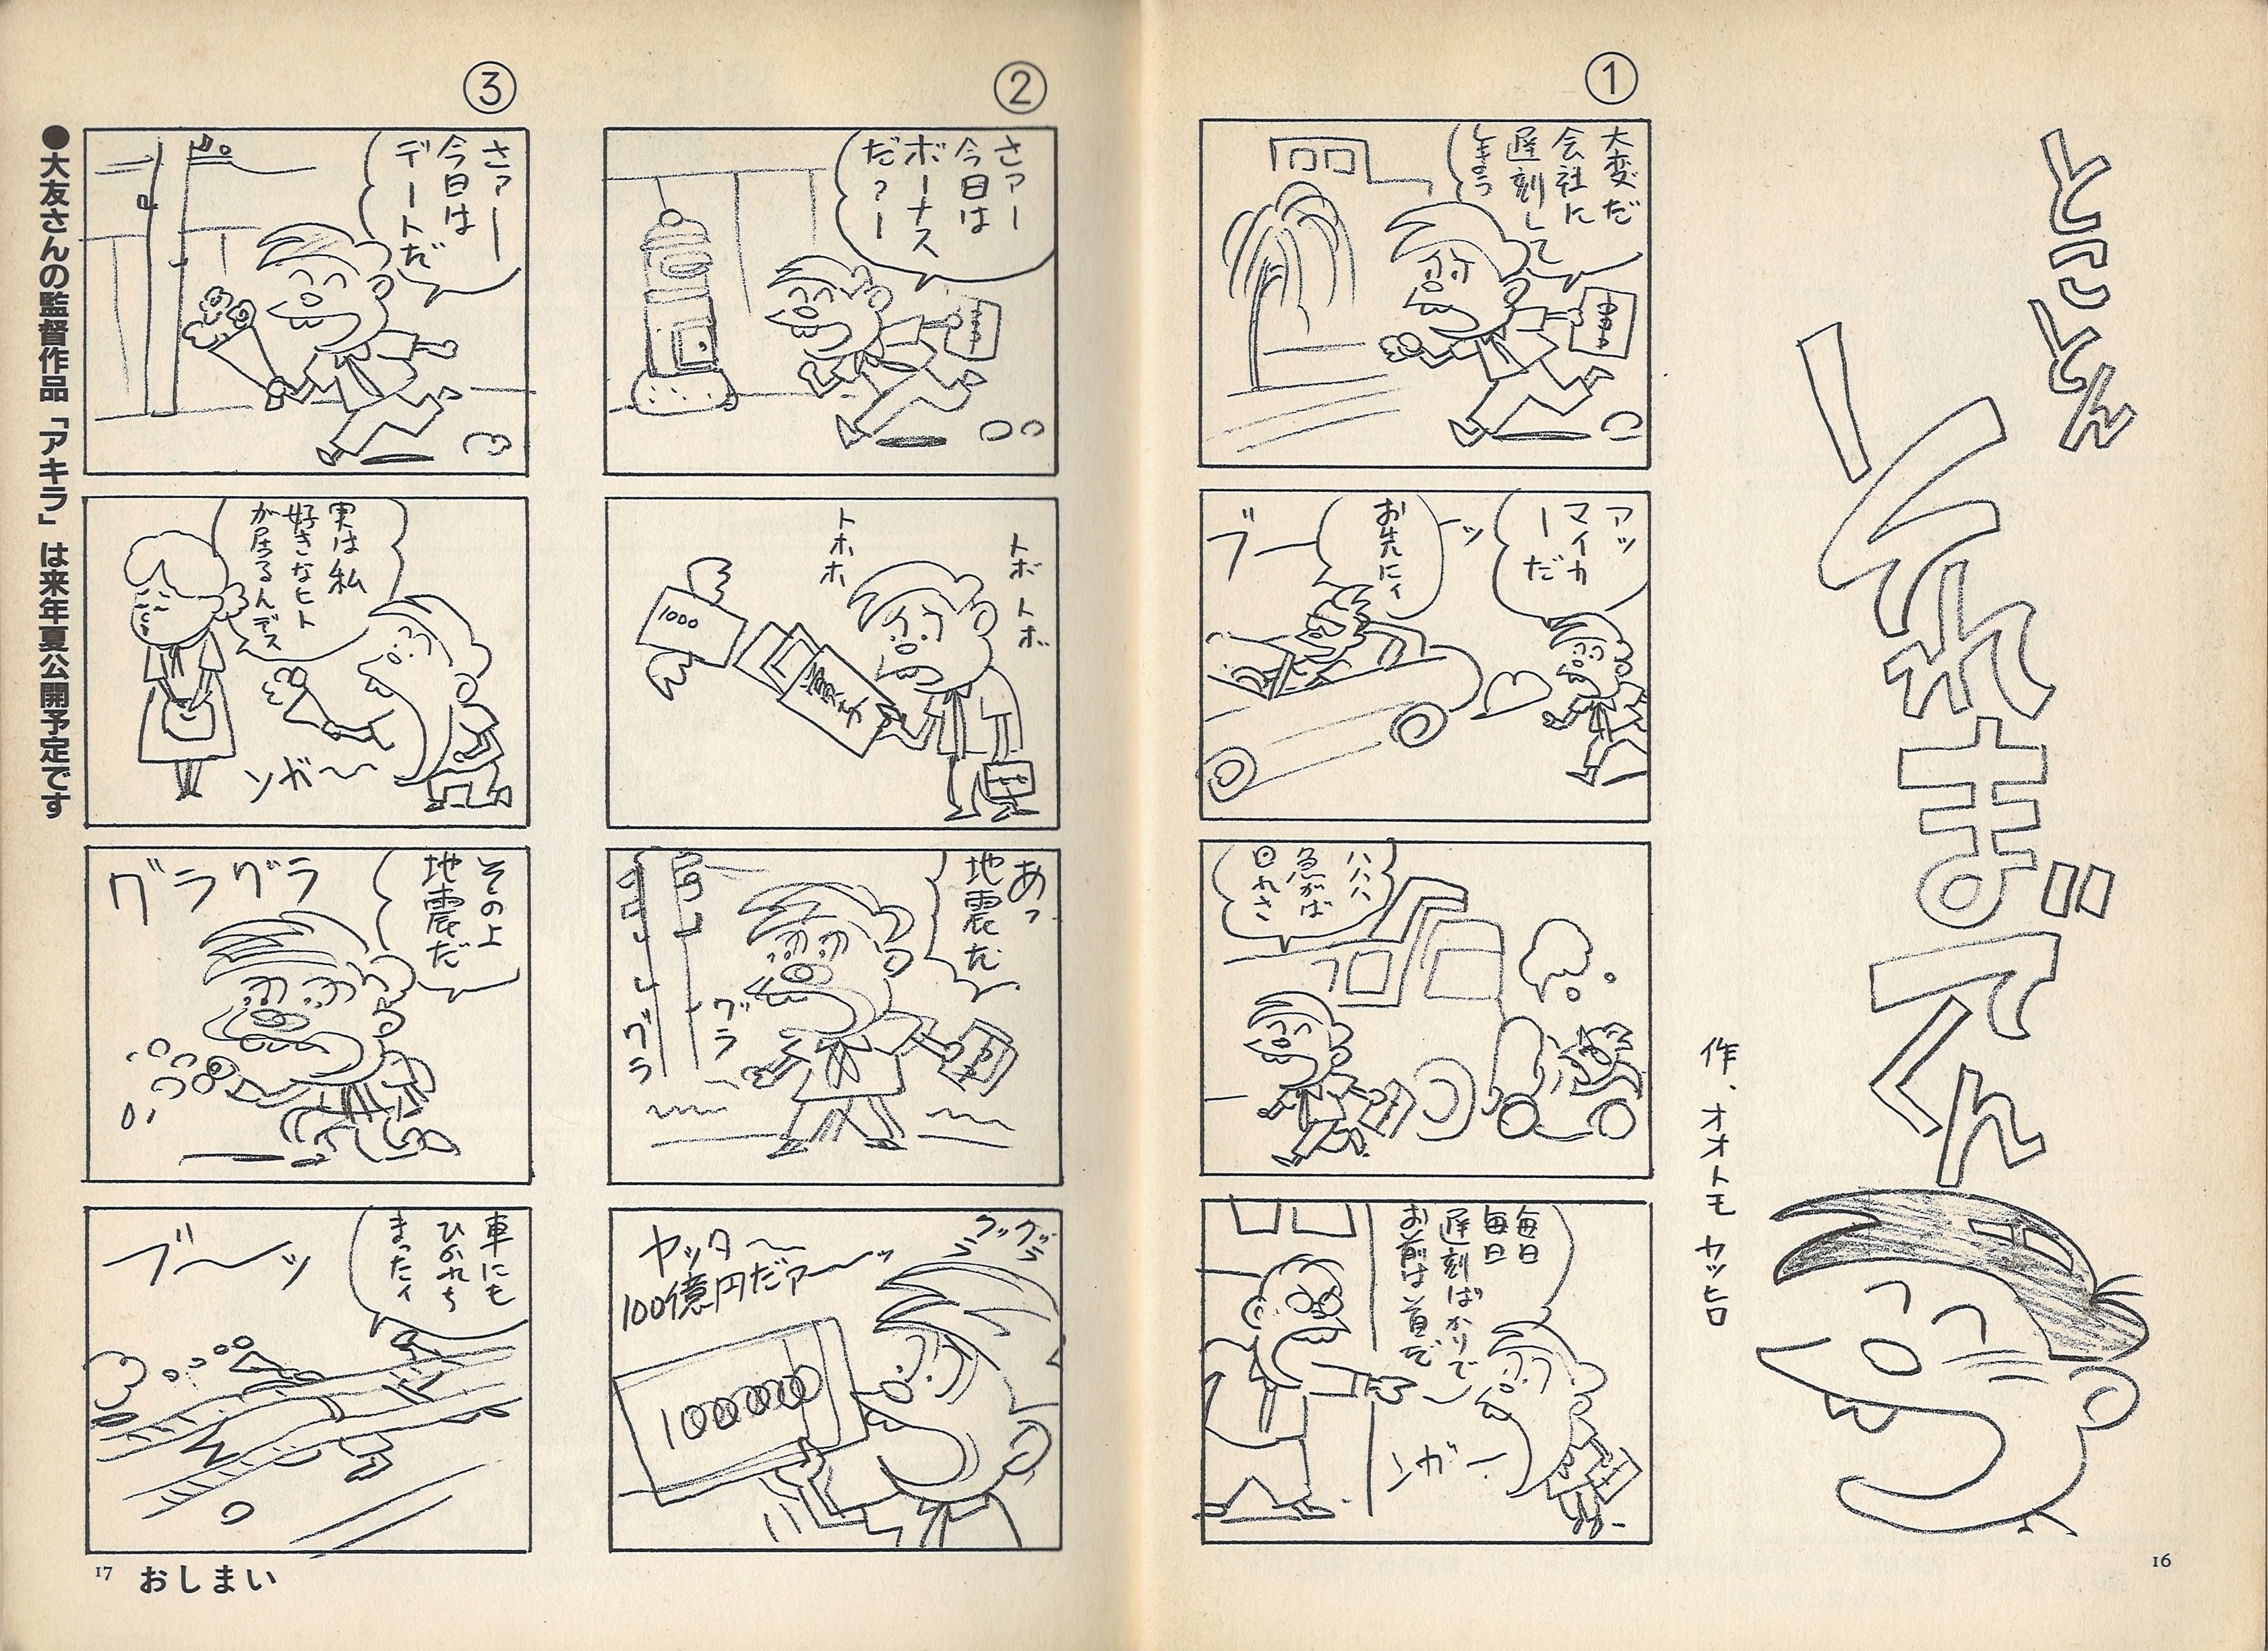 とことん
くそまじめくん
作、オオトモカツヒロ
①
大変だ
会社に
遅刻して
しまう
アッ
マイカ
ーだ
お先にィ
ブーッ
ハハハ
急がば
回れさ
毎日
毎日
遅刻ばかりで
お前は首だ
ンガー
16
②
さァー
今日は
ボーナス
だァー
トボトボ
トホホ
1000
あっ
地震だ
グラ
グラ
グッグッ
ヤッター
100億円だァーッ
100000
③
さァー
今日は
デートだ
実は私
好きなヒト
が居るんデス
ンガ〜
そのよ
地震だ
グラグラ
車にも
ひかれち
まったィ
ブ〜ッ
おしまい
17
●大友さんの監督作品「アキラ」は来年夏公開予定です